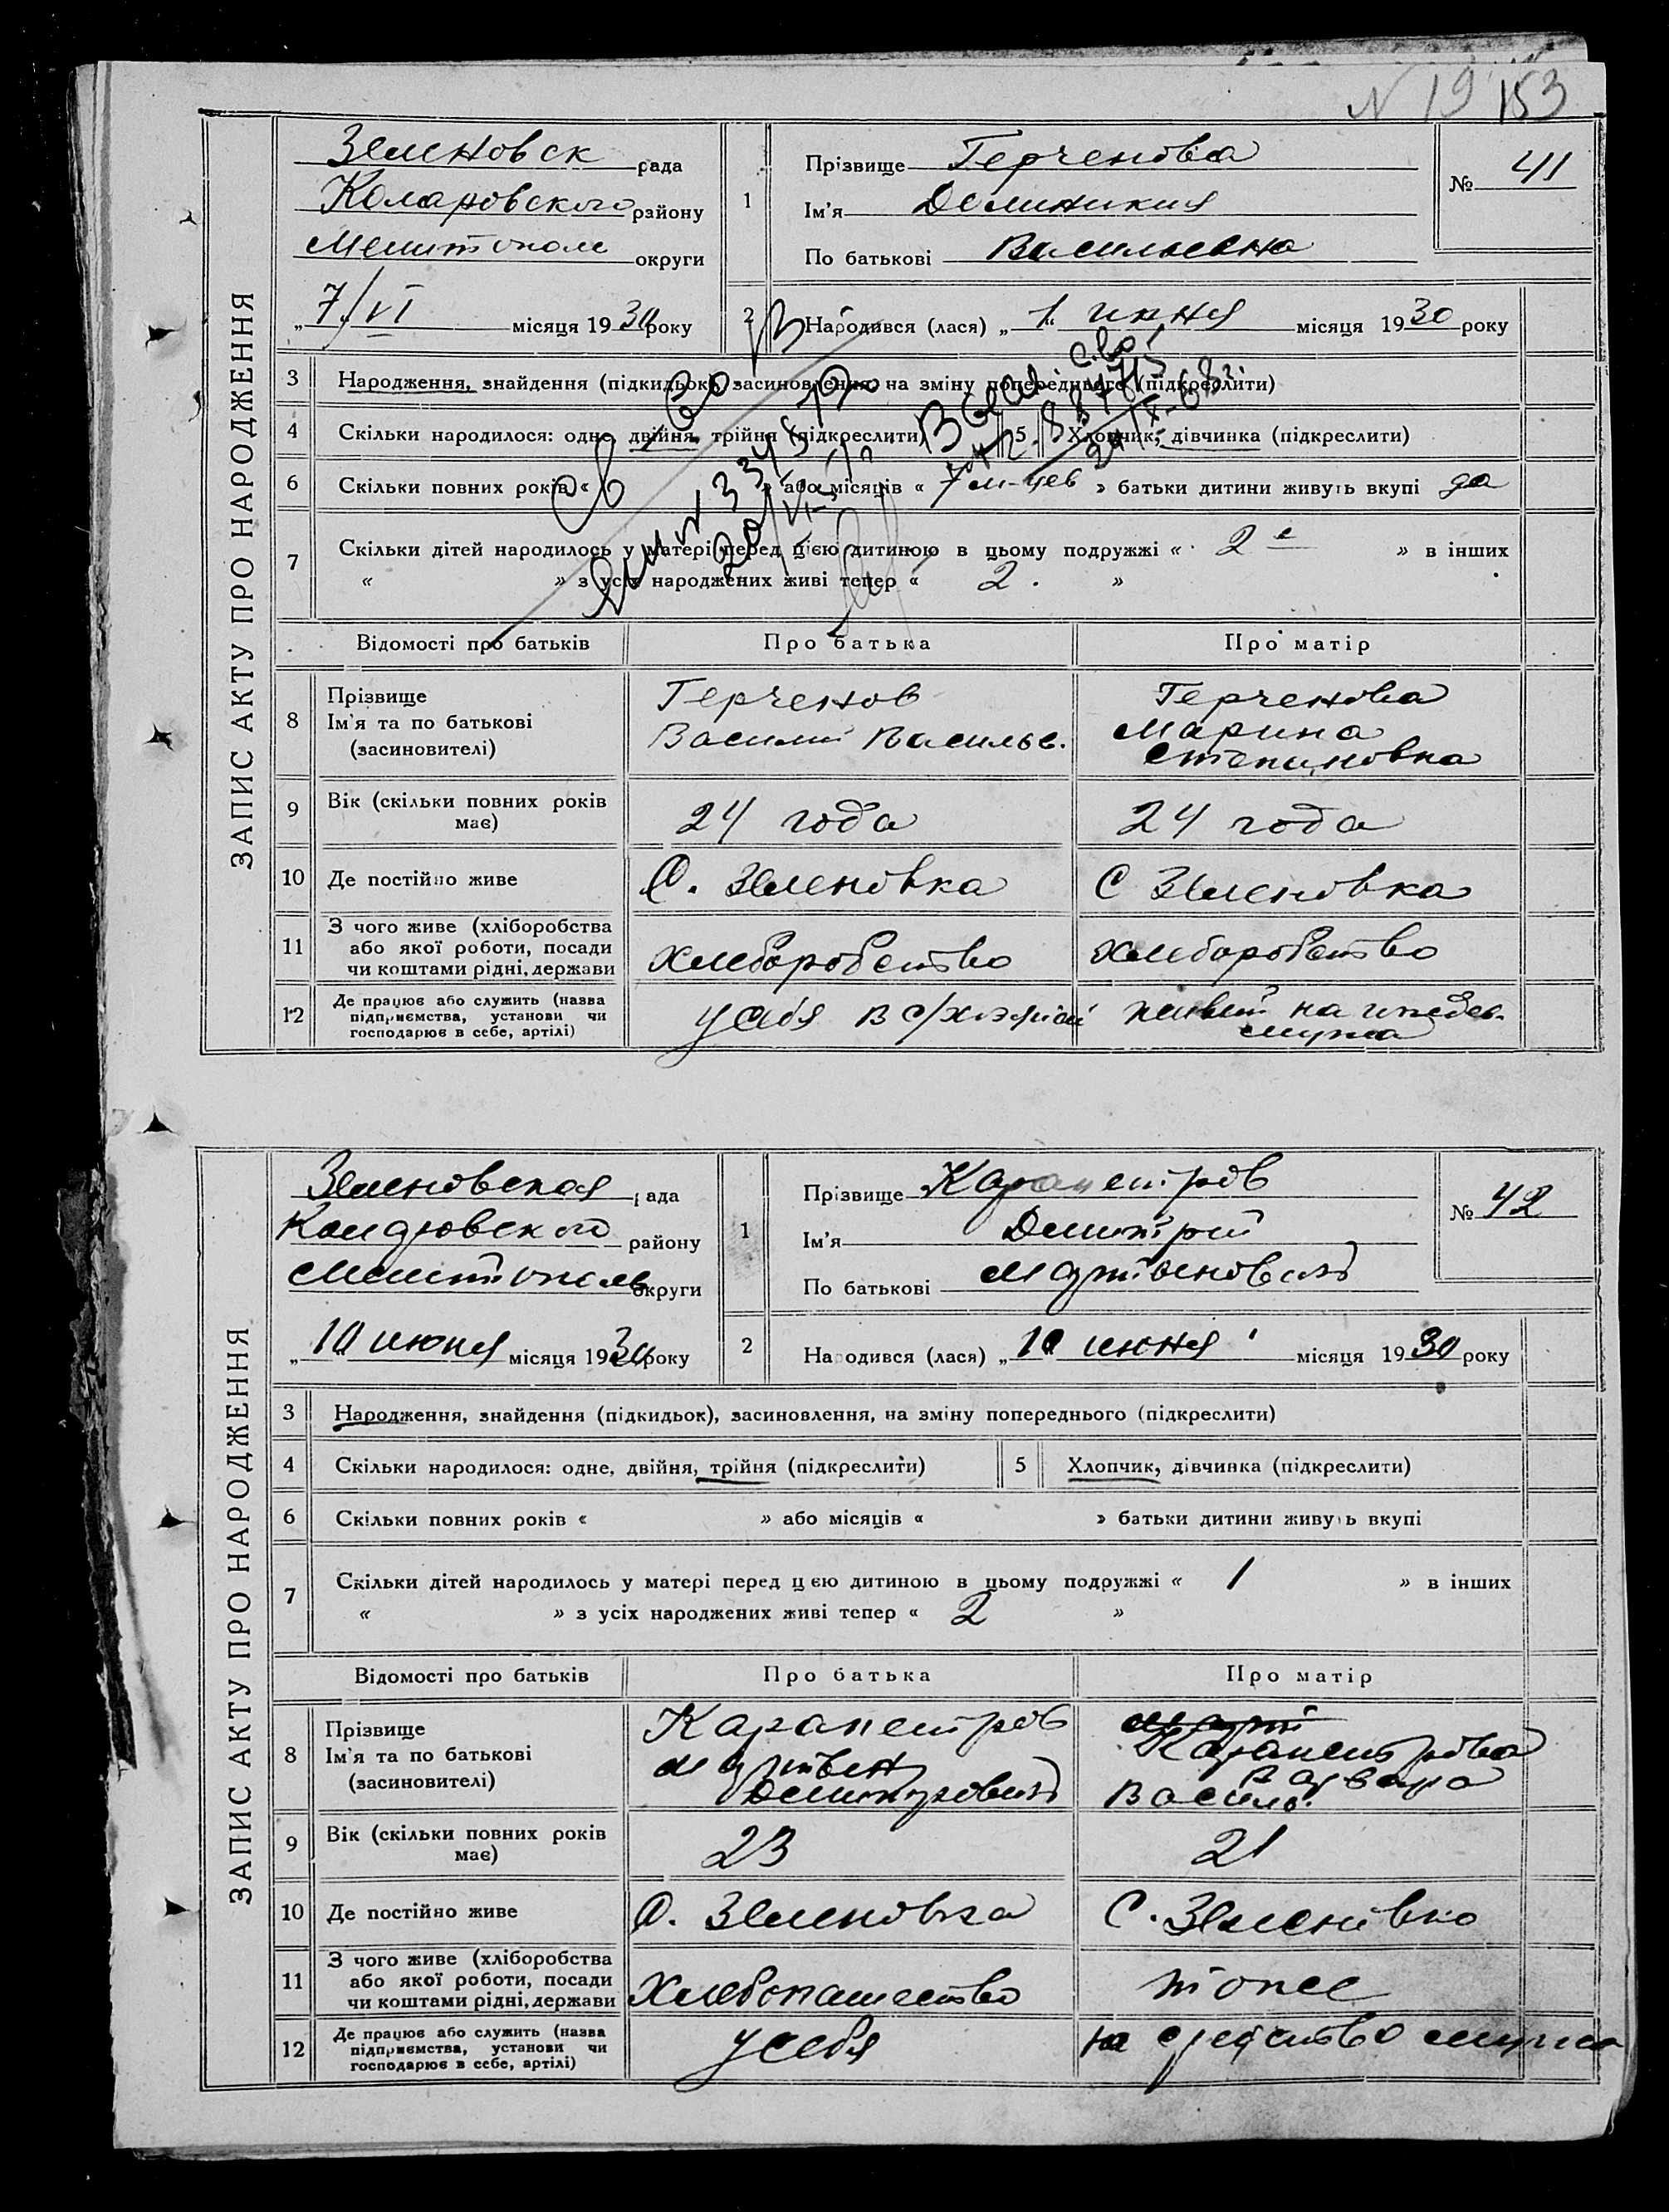 N 19 153
ЗАПИС АКТУ ПРО НАРОДЖЕННЯ
Зеленовск рада
Коларовского району
Мелитополь округи
„7/VI місяця 1930 року
1
Прізвище Герченова
Ім'я Доминикия
По батькові Васильевна
№ 41
2
Народився (лася) „1" июня місяця 1930 року
3 Народження, знайдення (підкидьок), засиновлення, на зміну попереднього (підкреслити)
4 Скільки народилося: одне, двійня, трійня (підкреслити)
5 Хлопчик, дівчинка (підкреслити)
6 Скільки повних років « » або місяців « 7 м-цев » батьки дитини живуть вкупі да
7 Скільки дітей народилось у матері перед цією дитиною в цьому подружжі « 2 е » в інших
« » з усіх народжених живі тепер « 2. »
Відомості про батьків Про батька Про матір
8 Прізвище
Ім'я та по батькові
(засиновителі)
Герченов
Василий Василье.
Герченова
Марина
Степановна
9 Вік (скільки повних років
має)
24 года
24 года
10 Де постійно живе
С. Зеленовка
С Зеленовка
11 З чого живе (хліборобства
або якої роботи, посади
чи коштами рідні, держави
Хлеборобство
Хлеборобство
12 Де працює або служить (назва
підприємства, установи чи
господарює в себе, артілі)
у себя в с/х
живет на
мужа
ЗАПИС АКТУ ПРО НАРОДЖЕННЯ
Зеленовская рада
району
Мелитополь округи
„10 июня місяця 1930 року
1
Прізвище Карапетров
Ім'я Дмитрий
По батькові Мартынович
№ 42
2
Народився (лася) „10 июня місяця 1930 року
3 Народження, знайдення (підкидьок), засиновлення, на зміну попереднього (підкреслити)
4 Скільки народилося: одне, двійня, трійня (підкреслити)
5 Хлопчик, дівчинка (підкреслити)
6 Скільки повних років « » або місяців « » батьки дитини живуть вкупі
7 Скільки дітей народилось у матері перед цією дитиною в цьому подружжі « 1 » в інших
« » з усіх народжених живі тепер « 2 »
Відомості про батьків Про батька Про матір
8 Прізвище
Ім'я та по батькові
(засиновителі)
Карапетров
Мартын
Дмитрович
Карапетрова
Варвара
Василь.
9 Вік (скільки повних років
має)
23
21
10 Де постійно живе
С. Зеленовка
С. Зеленовка
11 З чого живе (хліборобства
або якої роботи, посади
чи коштами рідні, держави
Хлебопашество
тоже
12 Де працює або служить (назва
підприємства, установи чи
господарює в себе, артілі)
у себя
на средства мужа